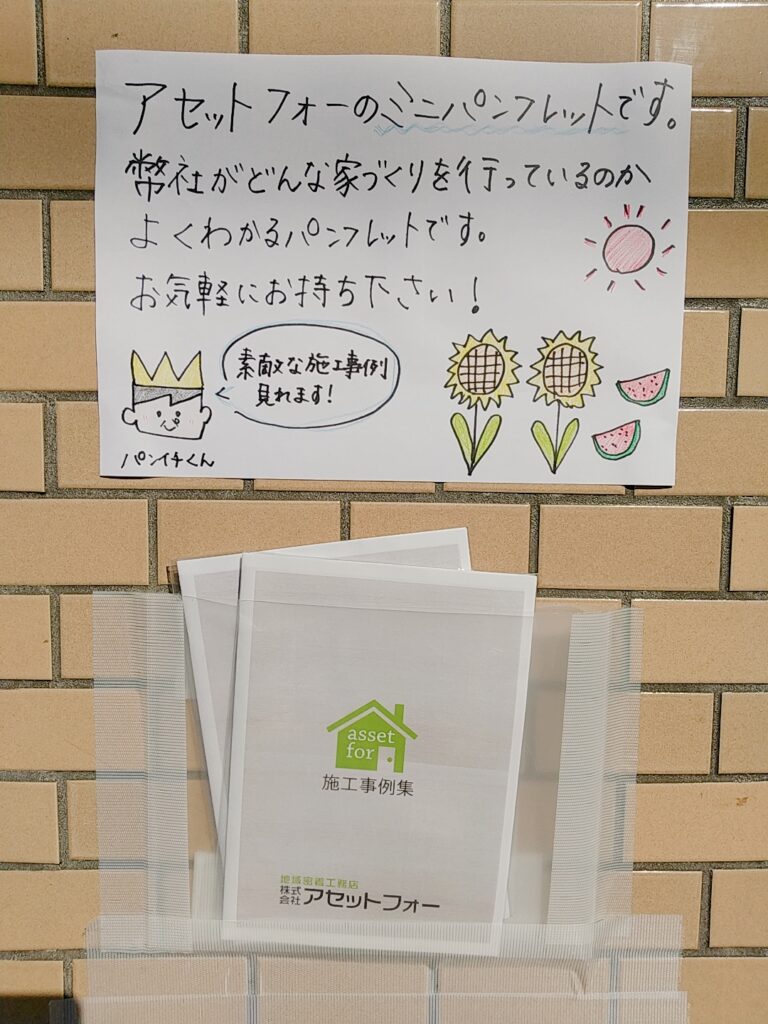 アセットフォーのミニパンフレットです。
弊社がどんな家づくりを行っているのか
よくわかるパンフレットです。
お気軽にお持ち下さい！
素敵な施工事例
見れます！
パンイチくん
asset
for
施工事例集
地域密着工務店
株式会社アセットフォー